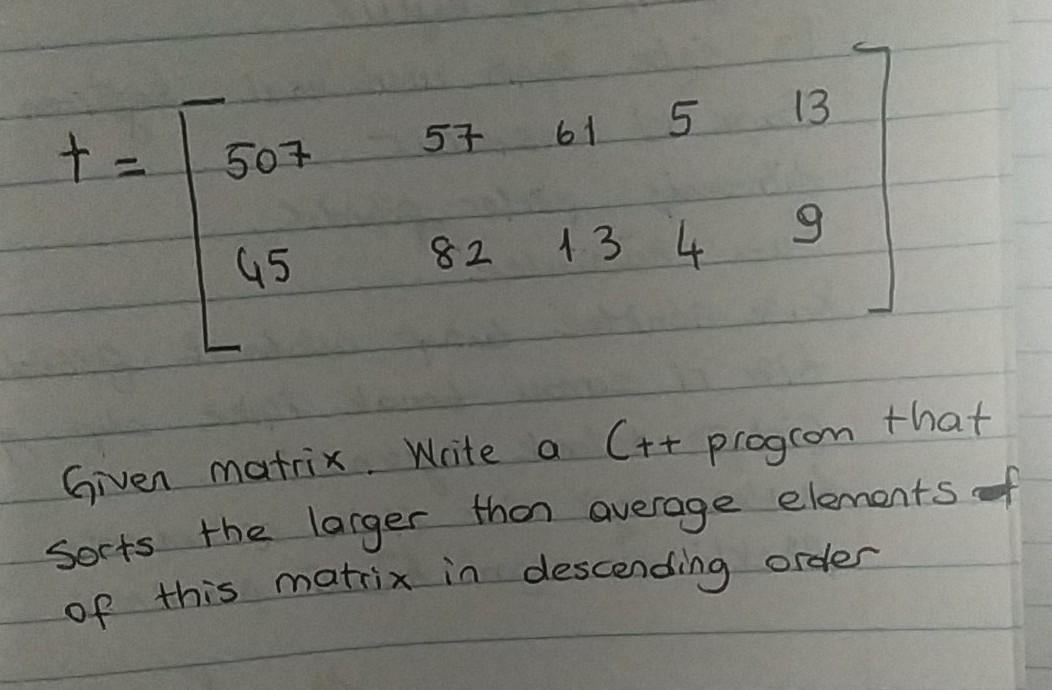 t = 507 57 61 5 13
45 82 13 4 9
Given matrix. Write a C++ program that
Sorts the larger than average elements
of this matrix in descending order